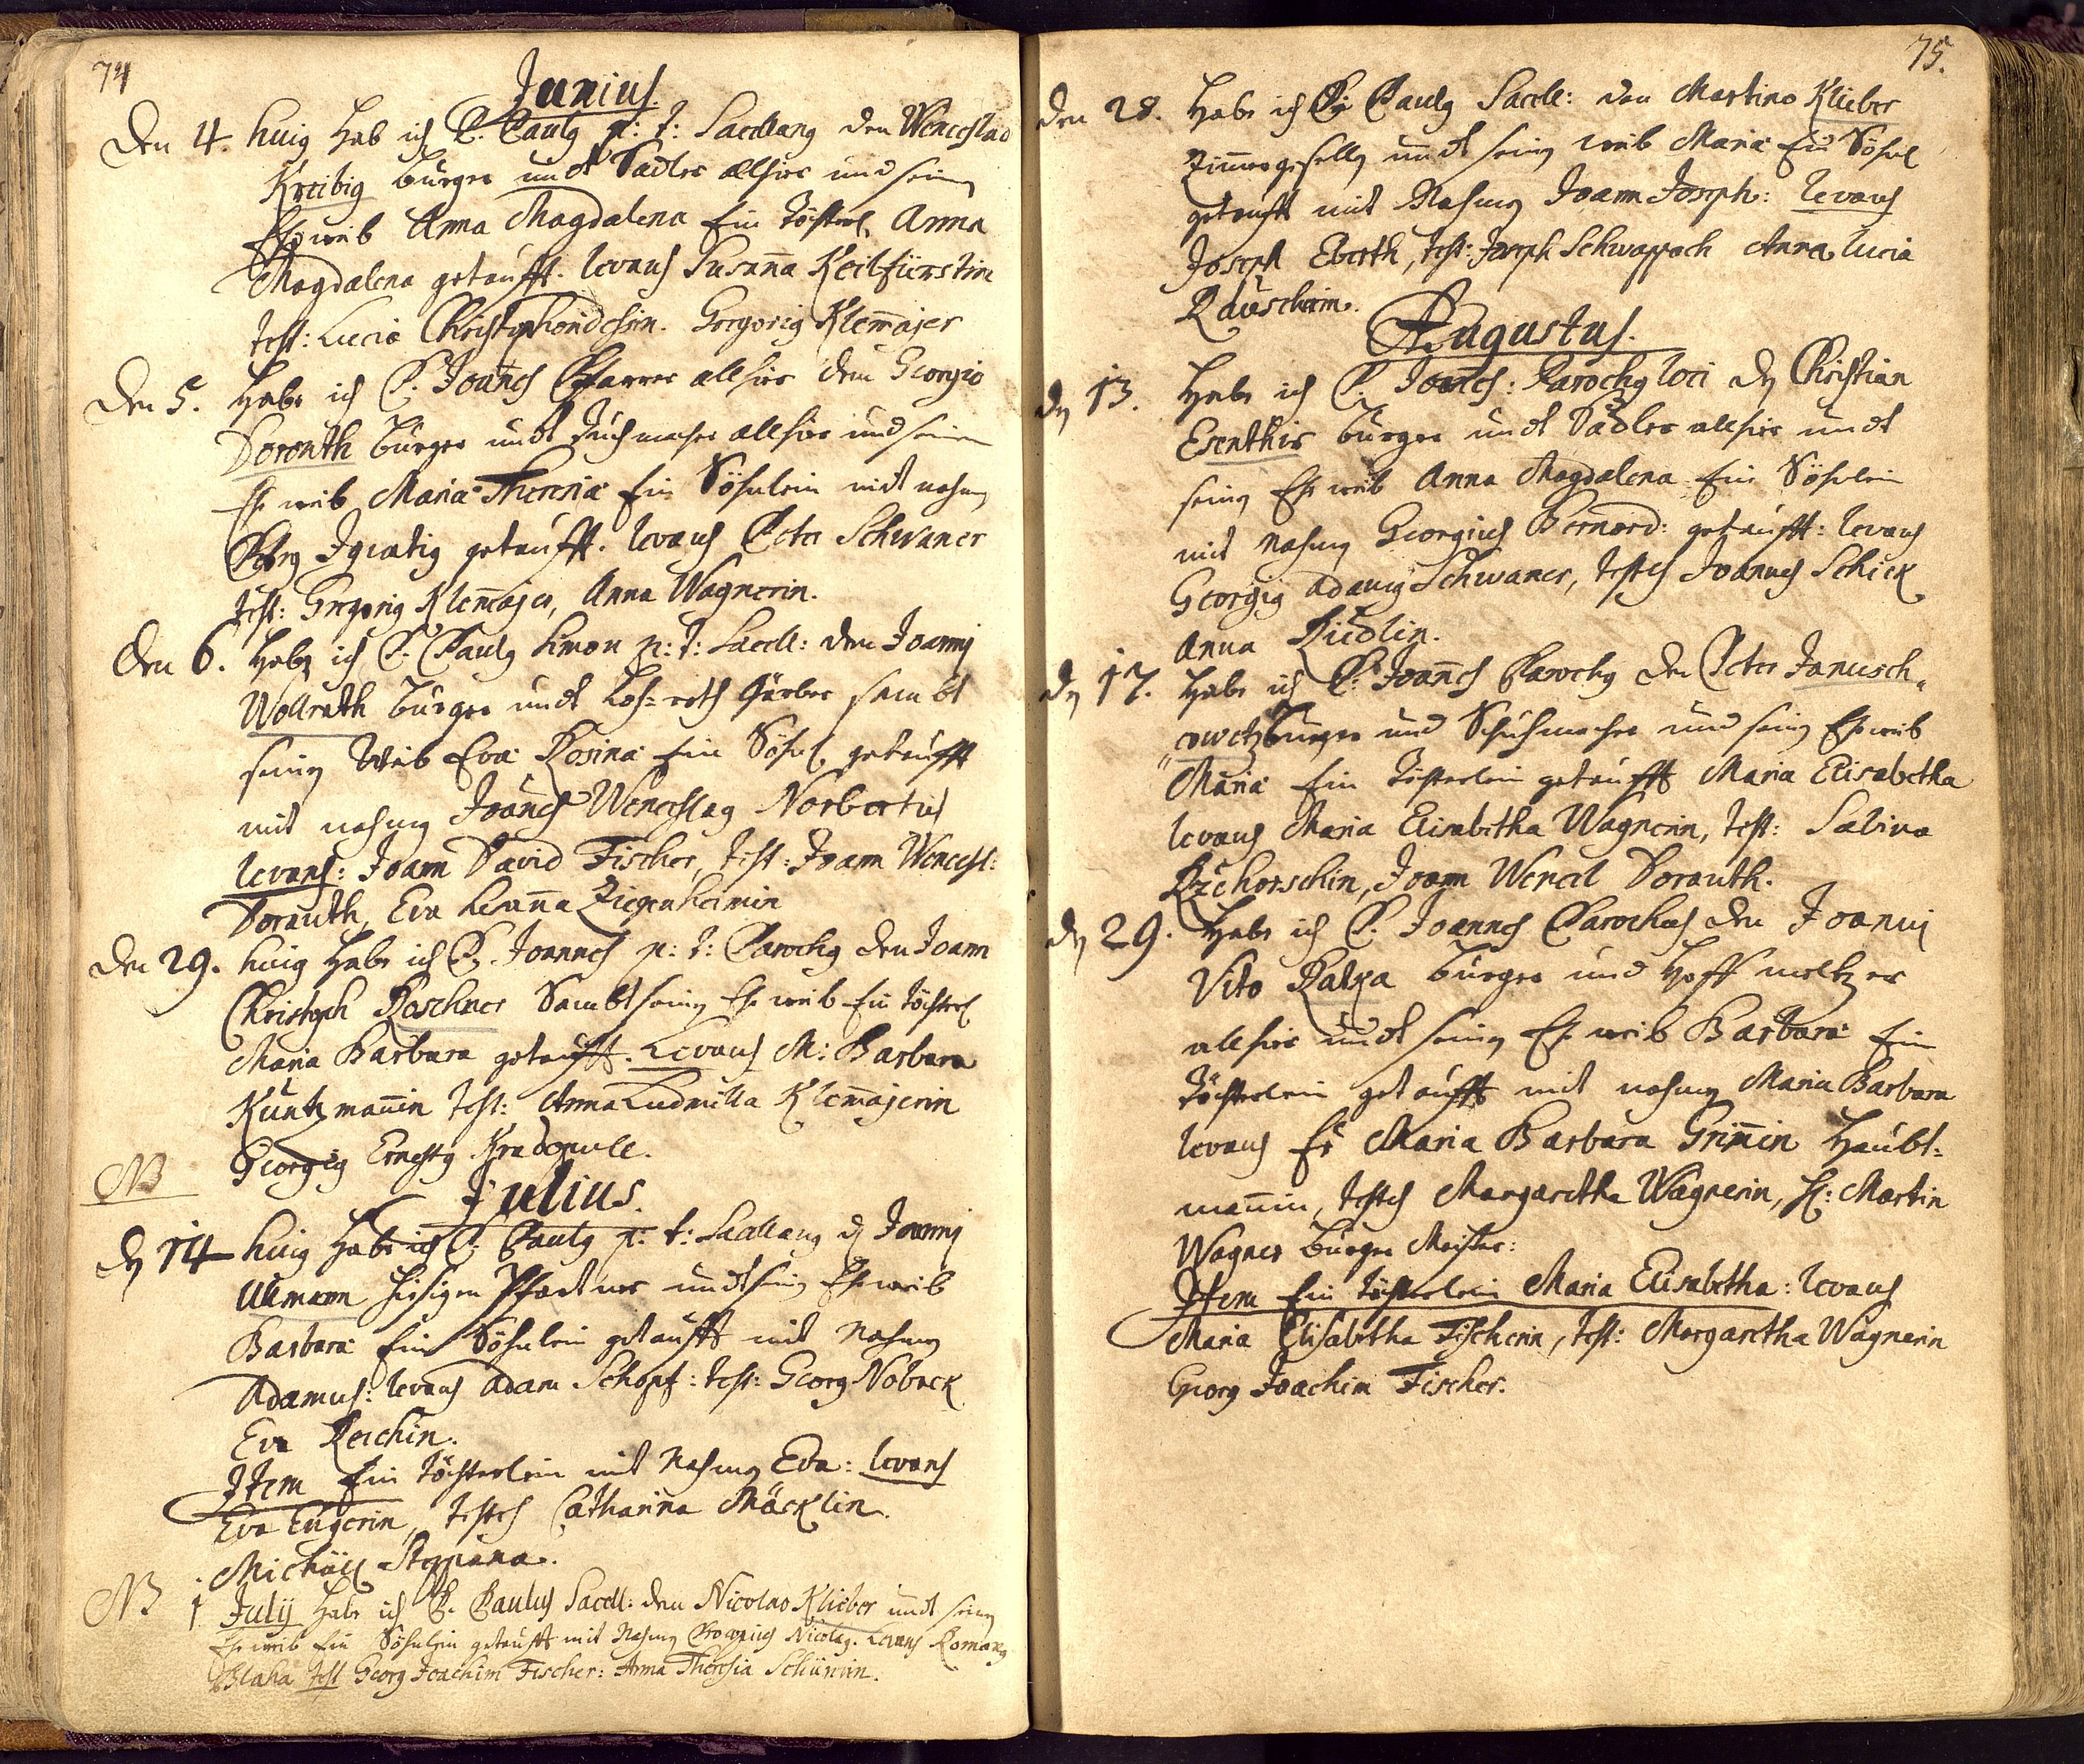 74
Junius.
Den 4. huig Hab ich P. Paulg p: t: Sacellang den Wenceslao
Kreibig burger undt Sadler allhier und seing
Eheweib Anna Magdalena Ein Töchterl. Anna
Magdalena getaufft. Levans Susanna Keilfürstin
test: Lucia Gregorig Klemajer
Den 5. Habe ich P. Joanes Pfarrer allhier dem Georgio
Dorauth burger undt Tuchmacher allhier und seinen
Eheweib Maria Theresia Ein Söhnlein mit nahmg
Ignatig getaufft. Levans Peter Schwaner
test: Gregorig Klemajer, Anna Wagnerin.
Den 6. Habe ich P. Paulg Simon p: t: Sacell: den Joannj
Wollrath burger undt Loh-roth gärber sambt
seing Weib Eva Rosina Ein Söhnl getaufft
mit nahmg Joanes Wenceslag Norbertus
Levans: Joann David Fischer, test: Joann Wencesl:
Dorauth, Eva Ziegenheimin
Den 29. huig Habe ich P. Joannes p: t: Parochg den Joann
Christoph Roschner Sambt seing Eheweib Ein Töchterl
Maria Barbara getaufft. Levans M: Barbara
Kuntzmanin test: Anna Ludmilla Klemajerin
Georgig Ernestg
NB
Julius.
dg 14 huig Habe ich P. Paulg p: t: Sacellang dg Joannj
Ullmann hiesigen undt seing Eheweib
Barbara Ein Söhnlein getaufft mit Nahmg
Adamus: Levans Adam Schopf: test: Georg Noback
Eva Reichin.
Item Ein Töchterlein mit Nahmg Eva: Levans
Eva Eugerin, testes Catharina Mäcklin.
Michäel Steppana.
NB 1 Julij Habe ich P. Paulus Sacell: den Nicolao Klieber undt seing
Eheweib Ein Söhnlein getaufft mit Nahmg Procopius Nicolag. Levans Romang
Blaha test Georg Joachim Fischer: Anna Theresia Schürerin.
75.
Den 28. Habe ich P: Paulg Sacell: den Martino Klieber
Zimmergesellg undt seing weib Maria Ein Söhnl
getaufft mit Nahmg Joann Joseph: Levans
Joseph Eberth, test: Joseph Schwappach Anna Lucia
Rauscherin.
Augustus.
dg 13. Habe ich P. Joanes: Parochg loci dg Christian
Esenther burger undt Sadler allhier undt
seing Eheweib Anna Magdalena Ein Söhnlein
mit nahmg Georgius Bernard: getaufft: Levans
Georgig Adamg Schwaner, testes Joannes Schick
Anna Riedlin.
dg 17. Habe ich P. Joanes Parochg den Peter Janusch-
owetz burger und Schuhmacher und seing Eheweib
Maria Ein Töchterlein getaufft Maria Elisabetha
Levans Maria Elisabetha Wagnerin, test: Sabina
Rzehorschin, Joann Wencel Dorauth.
dg 29. Habe ich P. Joannes Parochus den Joannj
Vito Ratka burger und Hoff meltzer
allhier undt seing Eheweib Barbara Ein
Töchterlein getaufft mit nahmg Maria Barbara
Levans Fr Maria Barbara Grimin Haubt-
mannin, testes Margaretha Wagnerin, H: Martin
Wagner burger Meister:
Item Ein Töchterlein Maria Elisabetha: Levans
Maria Elisabetha Fischerin, test: Margaretha Wagnerin
Georg Joachim Fischer.